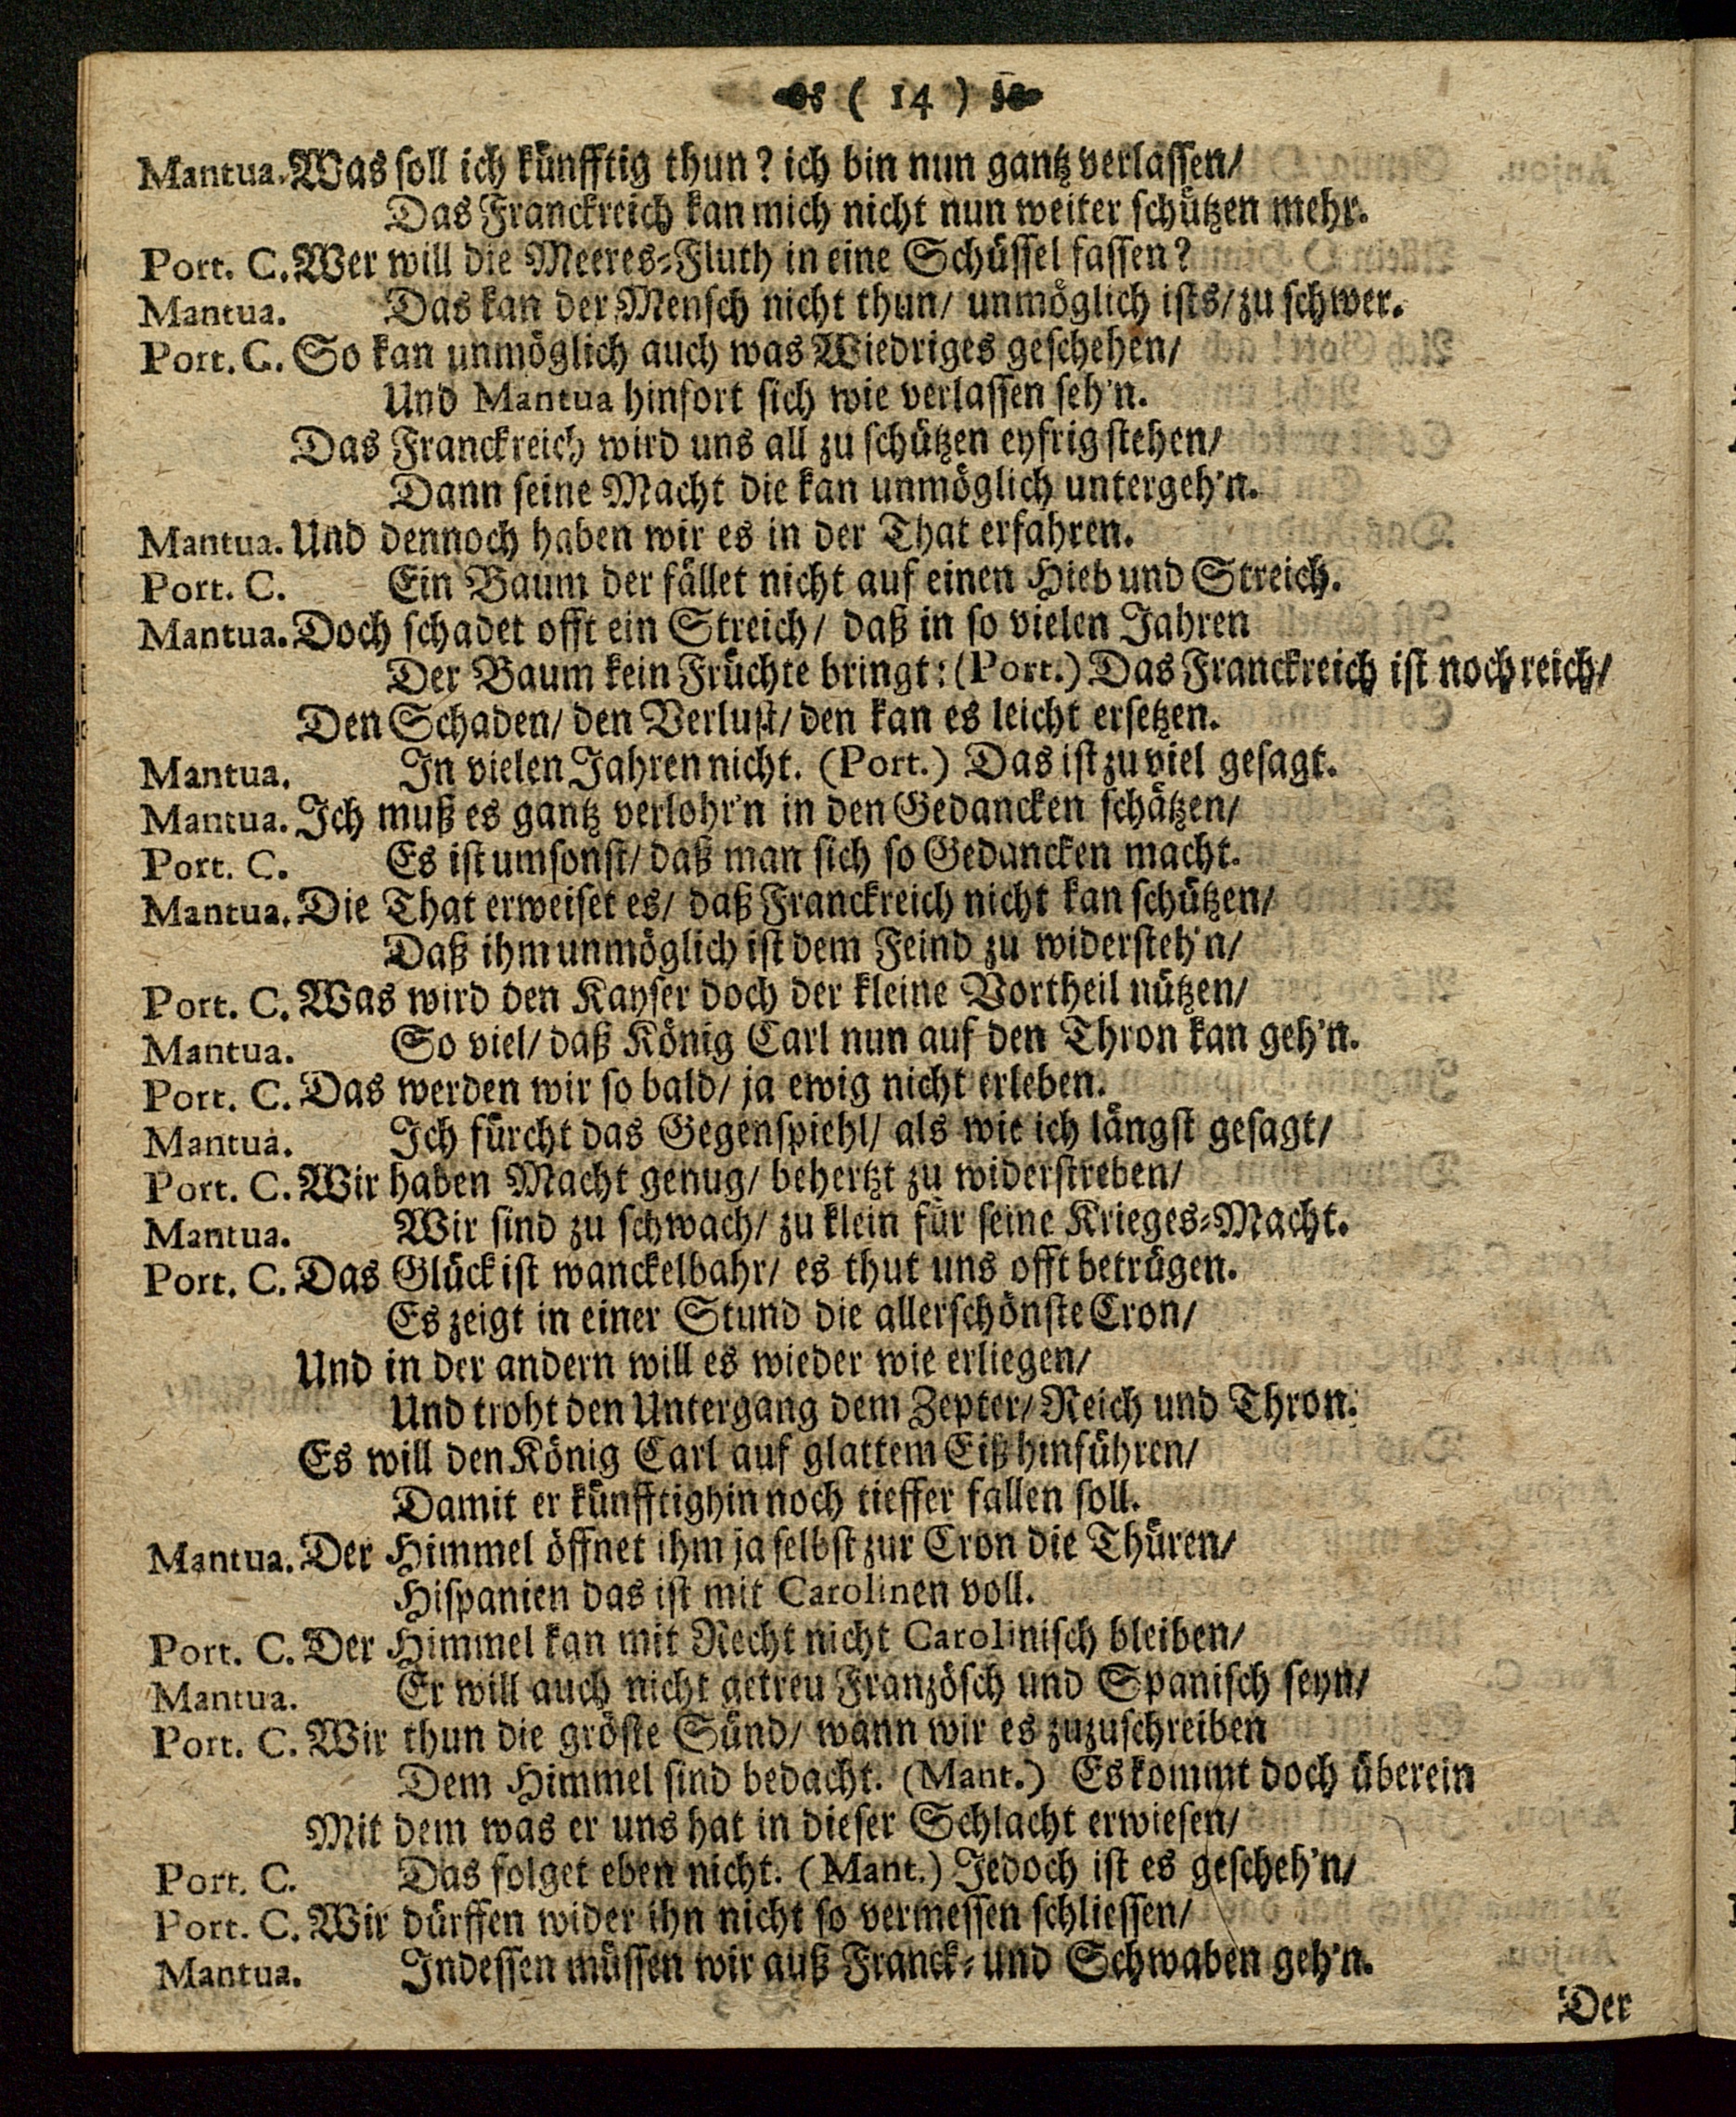 ( 14 )
Mantua. Was soll ich künfftig thun? ich bin nun gantz verlassen/
Das Franckreich kan mich nicht nun weiter schützen mehr.
Port. C. Wer will die Meeres-Fluth in eine Schüssel fassen?
Mantua. Das kan der Mensch nicht thun/ unmöglich ists/ zu schwer.
Port. C. So kan unmöglich auch was Wiedriges geschehen/
Und Mantua hinfort sich wie verlassen seh'n.
Das Franckreich wird uns all zu schützen eyfrig stehen/
Dann seine Macht die kan unmöglich untergeh'n.
Mantua. Und dennoch haben wir es in der That erfahren.
Port. C. Ein Baum der fället nicht auf einen Hieb und Streich.
Mantua. Doch schadet offt ein Streich/ daß in so vielen Jahren
Der Baum kein Früchte bringt: (Port.) Das Franckreich ist noch reich/
Den Schaden/ den Verlust/ den kan es leicht ersetzen.
Mantua. In vielen Jahren nicht. (Port.) Das ist zu viel gesagt.
Mantua. Ich muß es gantz verlohr'n in den Gedancken schätzen/
Port. C. Es ist umsonst/ daß man sich so Gedancken macht.
Mantua. Die That erweiset es/ daß Franckreich nicht kan schützen/
Daß ihm unmöglich ist dem Feind zu widersteh'n/
Port. C. Was wird den Kayser doch der kleine Vortheil nützen/
Mantua. So viel/ daß König Carl nun auf den Thron kan geh'n.
Port. C. Das werden wir so bald/ ja ewig nicht erleben.
Mantua. Ich fürcht das Gegenspiehl/ als wie ich längst gesagt/
Port. C. Wir haben Macht genug/ behertzt zu widerstreben/
Mantua. Wir sind zu schwach/ zu klein für seine Krieges-Macht.
Port. C. Das Glück ist wanckelbahr/ es thut uns offt betrügen.
Es zeigt in einer Stund die allerschönste Cron/
Und in der andern will es wieder wie erliegen/
Und troht den Untergang dem Zepter/ Reich und Thron.
Es will den König Carl auf glattem Eiß hinführen/
Damit er künfftighin noch tieffer fallen soll.
Mantua. Der Himmel öffnet ihm ja selbst zur Cron die Thüren/
Hispanien das ist mit Carolinen voll.
Port. C. Der Himmel kan mit Recht nicht Carolinisch bleiben/
Mantua. Er will auch nicht getreu Französch und Spanisch seyn/
Port. C. Wir thun die gröste Sünd/ wann wir es zuzuschreiben
Dem Himmel sind bedacht. (Mant.) Es kommt doch überein
Mit dem was er uns hat in dieser Schlacht erwiesen/
Port. C. Das folget eben nicht. (Mant.) Jedoch ist es gescheh'n/
Port. C. Wir dürffen wider ihn nicht so vermessen schliessen/
Mantua. Indessen müssen wir auß Franck- und Schwaben geh'n.
Der